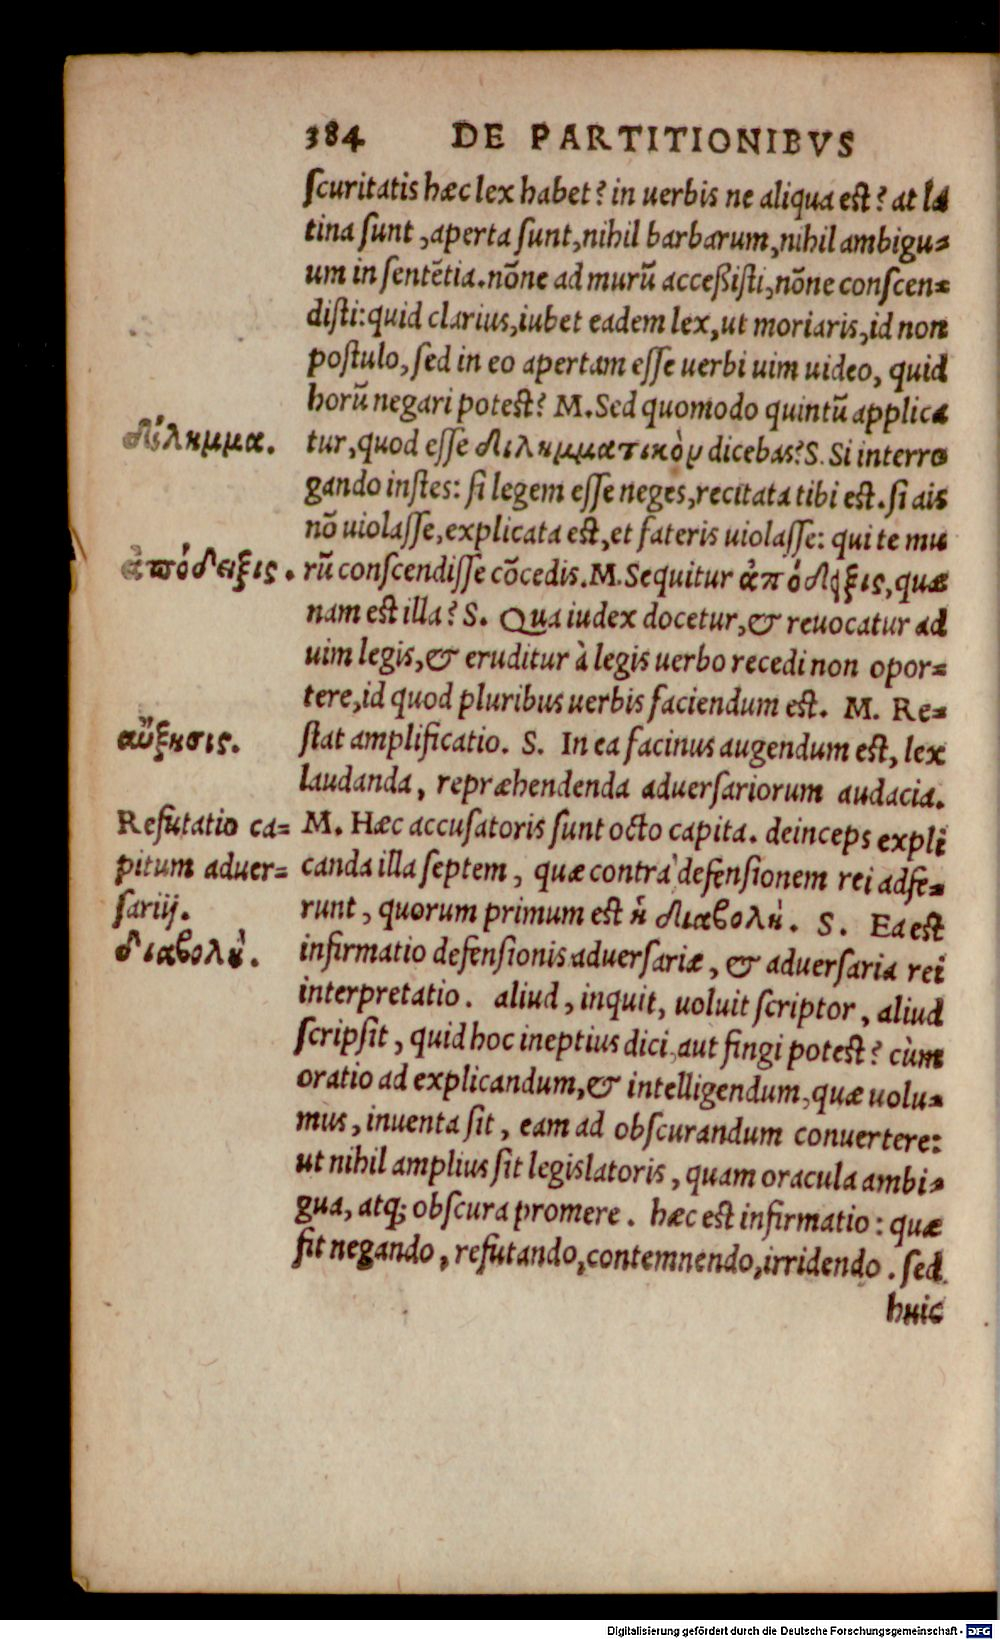 384 DE PARTITIONIBVS
scuritatis hæc lex habet? in uerbis ne aliqua est? at la
tina sunt, aperta sunt, nihil barbarum, nihil ambigu-
um in sentẽtia. nõne ad murũ acceßisti, nõne conscen-
disti: quid clarius, iubet eadem lex, ut moriaris, id non
postulo, sed in eo apertam esse uerbi uim uideo, quid
horũ negari potest? M. Sed quomodo quintũ applica
δίλημμα.
tur, quod esse διλημματικὸν dicebas? S. Si interro
gando instes: si legem esse neges, recitata tibi est. si ais
nõ uiolasse, explicata est, et fateris uiolasse: qui te mu
ἀπόδειξις.
rũ conscendisse cõcedis. M. Sequitur ἀπόδειξις, quæ
nam est illa? S. Qua iudex docetur, & reuocatur ad
uim legis, & eruditur à legis uerbo recedi non opor-
tere, id quod pluribus uerbis faciendum est. M. Re-
αὔξησις.
stat amplificatio. S. In ea facinus augendum est, lex
laudanda, repræhendenda aduersariorum audacia.
Refutatio ca-
pitum aduer-
sarij.
διαβολὴ.
M. Hæc accusatoris sunt octo capita. deinceps expli
canda illa septem, quæ contrà defensionem rei adfe-
runt, quorum primum est ἡ διαβολὴ. S. Ea est
infirmatio defensionis aduersariæ, & aduersaria rei
interpretatio. aliud, inquit, uoluit scriptor, aliud
scripsit, quid hoc ineptius dici, aut fingi potest? cùm
oratio ad explicandum, & intelligendum, quæ uolu-
mus, inuenta sit, eam ad obscurandum conuertere:
ut nihil amplius sit legislatoris, quam oracula ambi-
gua, atq; obscura promere. hæc est infirmatio: quæ
fit negando, refutando, contemnendo, irridendo. sed
huic
Digitalisierung gefördert durch die Deutsche Forschungsgemeinschaft - DFG